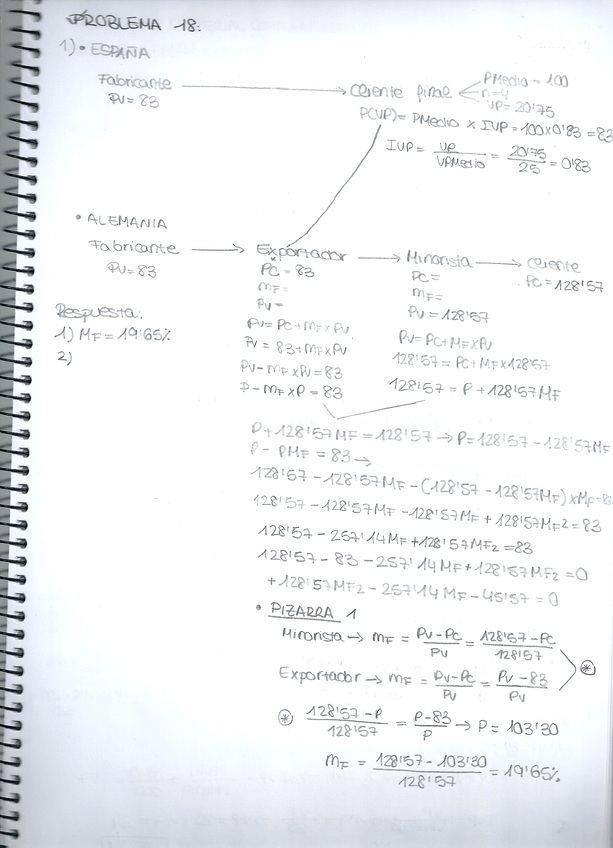 PROBLEMA 18:
1) • ESPAÑA
Fabricante → Cliente final
PMedio = 100
n=4
VP = 20'75
PV = 83
P(VP) = PMedio x IVP = 100x0'83 = 83
IVP = VP / VPMedio = 20'75 / 25 = 0'83
• ALEMANIA
Fabricante → Exportador → Minorista → Cliente
PV = 83
PC = 83
PC =
PC = 128'57
MF =
MF =
PV =
PV = 128'57
PV = PC + MF x PV
PV = PC + MF x PV
PV = 83 + MF x PV
128'57 = PC + MF x 128'57
PV - MF x PV = 83
128'57 = P + 128'57 MF
P - MF x P = 83
Respuesta:
1) MF = 19'65%
2)
P + 128'57 MF = 128'57 → P = 128'57 - 128'57 MF
P - PMF = 83 →
128'57 - 128'57 MF - (128'57 - 128'57 MF) x MF = 83
128'57 - 128'57 MF - 128'57 MF + 128'57 MF² = 83
128'57 - 257'14 MF + 128'57 MF2 = 83
128'57 - 83 - 257'14 MF + 128'57 MF2 = 0
+128'57 MF2 - 257'14 MF - 45'57 = 0
• PIZARRA 1
Minorista → MF = PV-PC / PV = 128'57 - PC / 128'57
Exportador → MF = PV-PC / PV = PV - 83 / PV
*
* 128'57 - P / 128'57 = P - 83 / P → P = 103'30
MF = 128'57 - 103'30 / 128'57 = 19'65%